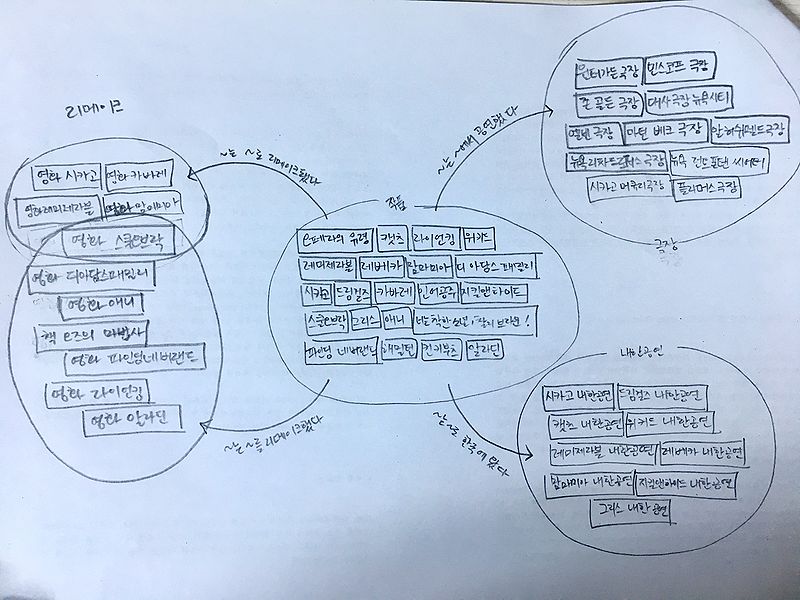 리메이크
영화 시카고 영화 카바레
영화 레미제라블 영화 맘마미아
영화 스쿨오브락
영화 디아담스패밀리
영화 애니
책 오즈의 마법사
영화 파인딩네버랜드
영화 라이언킹
영화 알라딘
~는 ~로 리메이크됐다
~는 ~를 리메이크했다
작품
오페라의 유령 캣츠 라이언킹 위키드
레미제라블 레베카 맘마미아 디 아담스 패밀리
시카고 드림걸즈 카바레 인어공주 지킬앤하이드
스쿨오브락 그리스 애니 너는 착한 소년, 찰리 브라운!
파인딩 네버랜드 해밀턴 킨키부츠 알라딘
~는 ~에서 공연했다
윈터가든극장 민스코프 극장
존 골든 극장 대사극장 뉴욕시티
엘번 극장 마틴 베크 극장 알허쉬펠드극장
뉴욕 리차드로저스 극장 뉴욕 런트폰텐 씨어터
시카고 머큐리극장 플리머스극장
극장
~는 ~로 한국에 왔다
내한공연
시카고 내한공연 드림걸즈 내한공연
캣츠 내한공연 위키드 내한공연
레미제라블 내한공연 레베카 내한공연
맘마미아 내한공연 지킬앤하이드 내한공연
그리스 내한공연